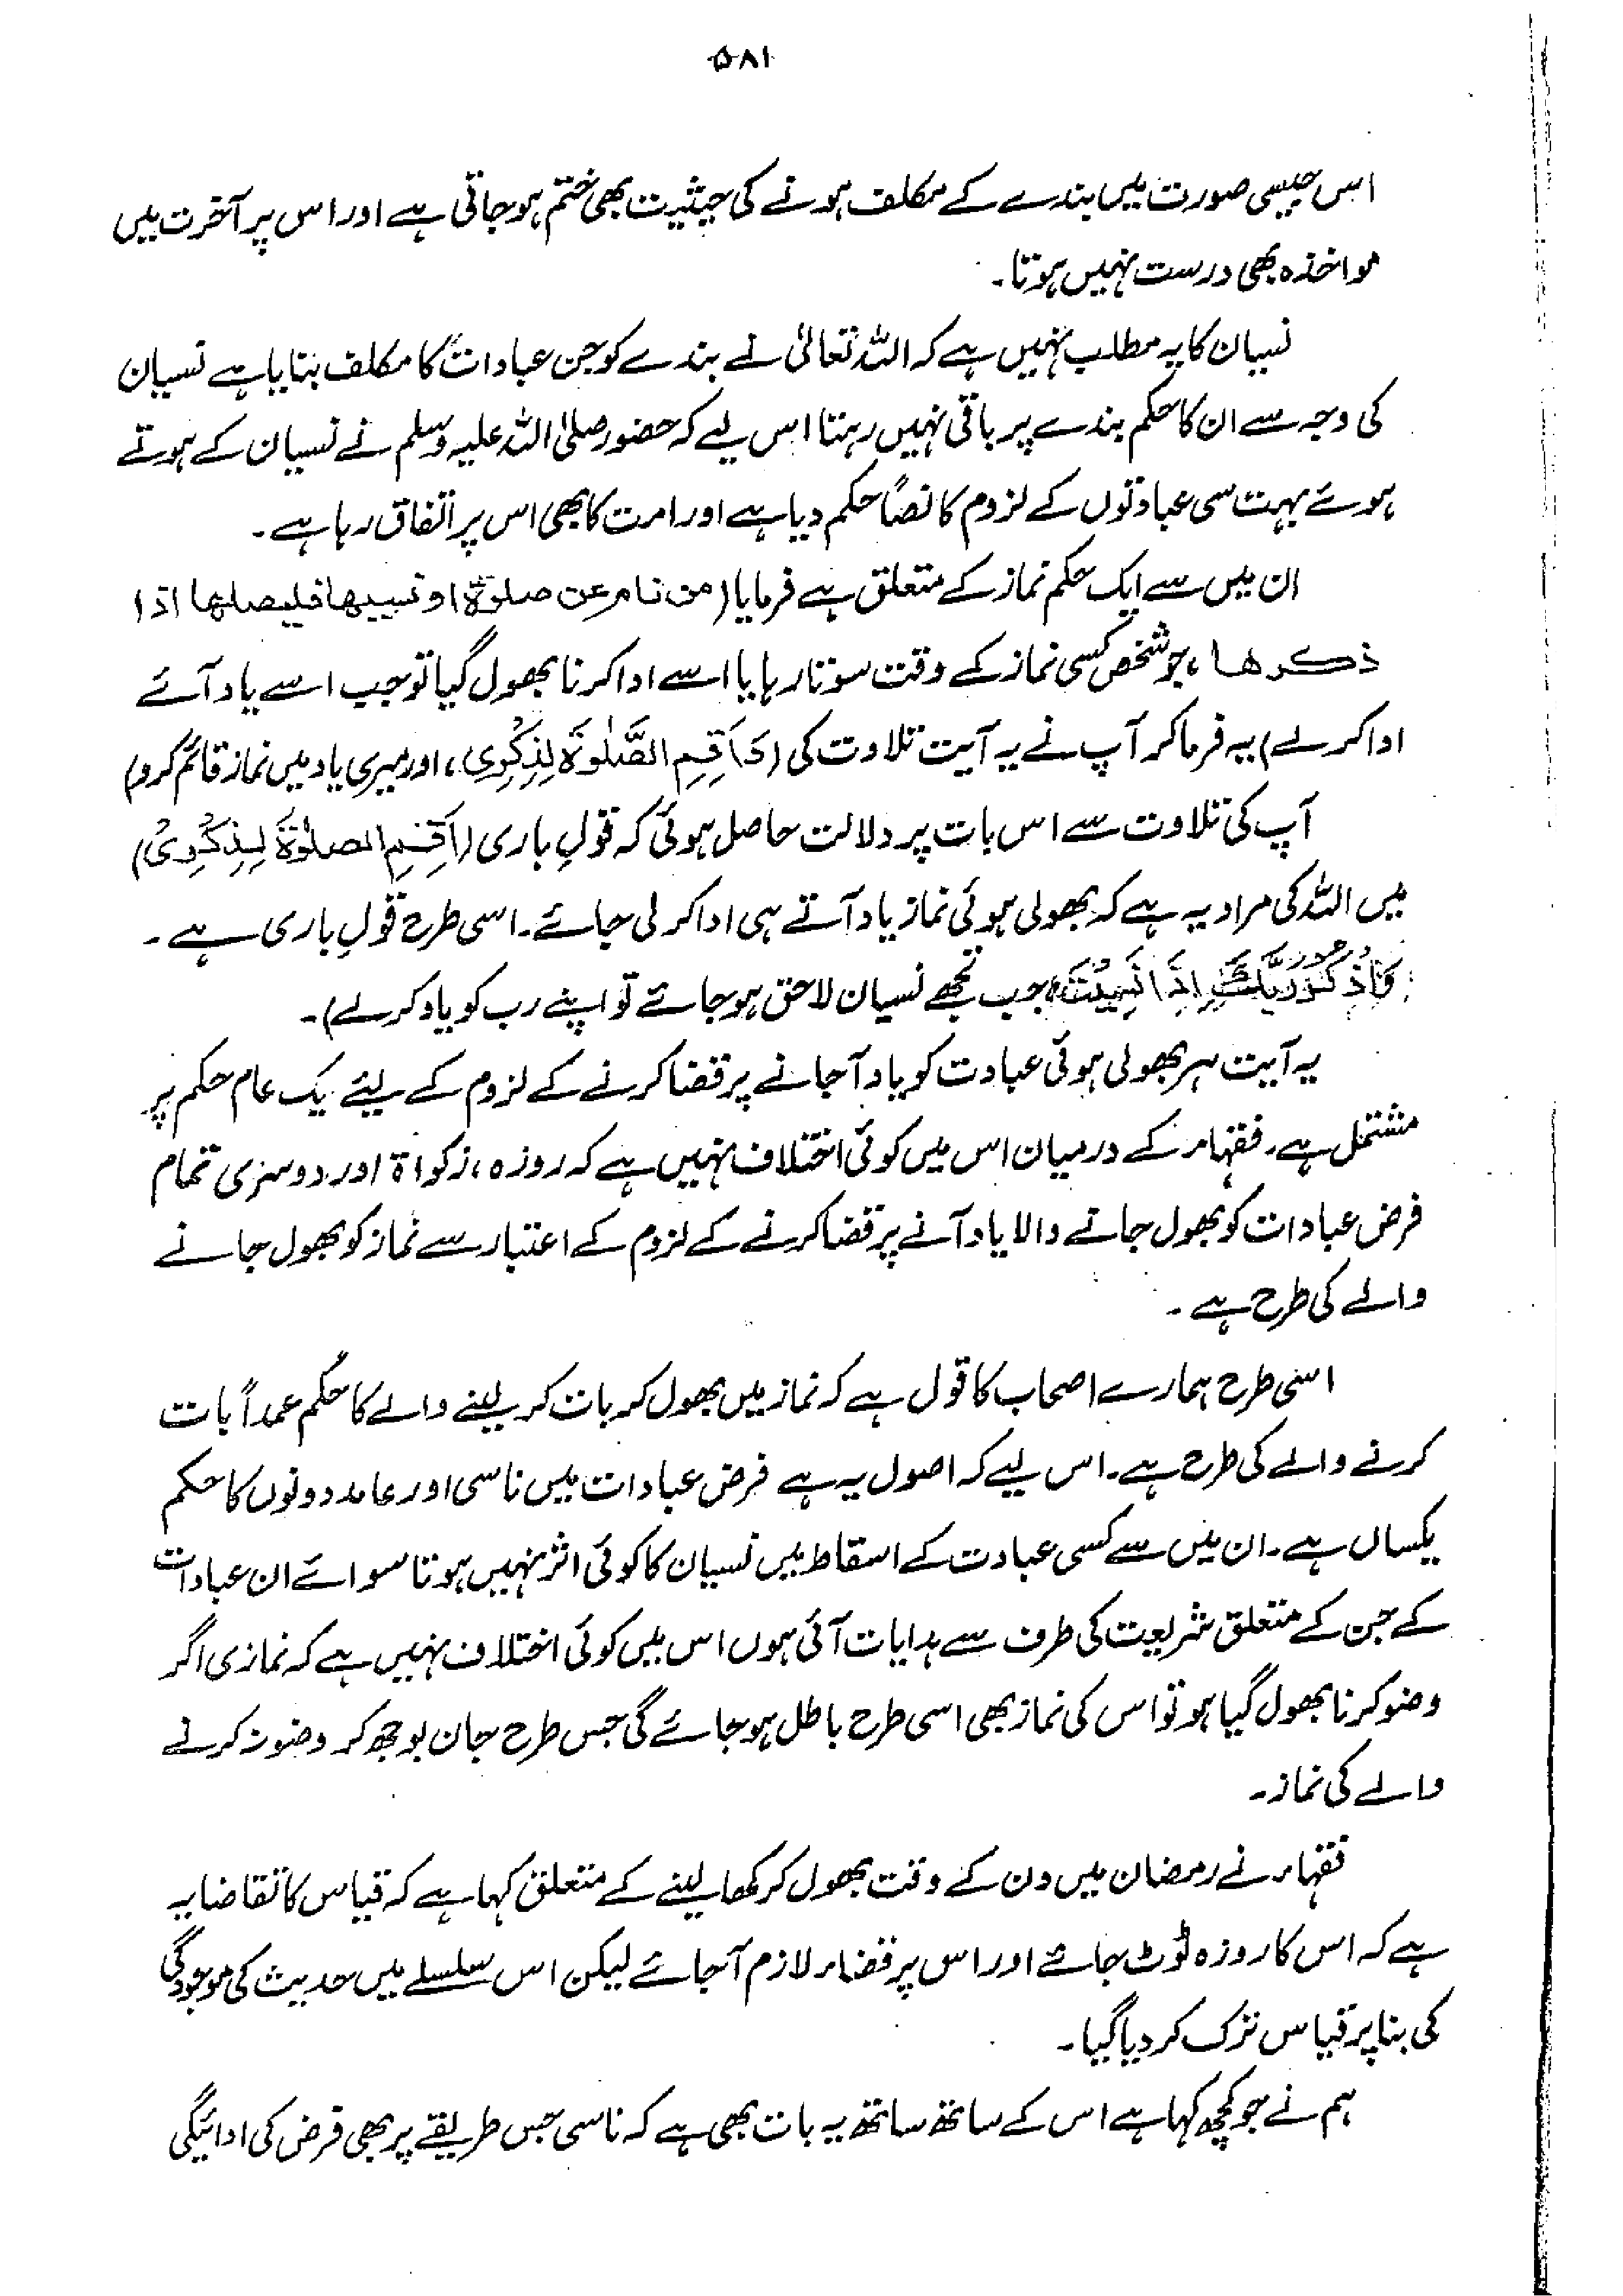 ۵۸۱
اس جیسی صورت میں بندے کے مکلف ہونے کی حیثیت بھی ختم ہو جاتی ہے اور اس پر آخرت میں
مواخذہ بھی درست نہیں ہوتا۔
نسیان کا یہ مطلب نہیں ہے کہ اللہ تعالیٰ نے بندے کو جن عبادات کا مکلف بنایا ہے نسیان
کی وجہ سے ان کا حکم بندے پر باقی نہیں رہتا اس لیے کہ حضور صلی اللہ علیہ وسلم نے نسیان کے ہوتے
ہوئے بہت سی عبادتوں کے لزوم کا نصاً حکم دیا ہے اور امت کا بھی اس پر اتفاق رہا ہے۔
ان میں سے ایک حکم نماز کے متعلق ہے فرمایا (من نام عن صلوٰۃ او نسیھا فلیصلھا اذا
ذکرھا، جو شخص کسی نماز کے وقت سوتا رہا یا اسے ادا کرنا بھول گیا تو جب اسے یاد آئے
ادا کر لے) یہ فرما کر آپ نے یہ آیت تلاوت کی (وَاَقِمِ الصَّلٰوۃَ لِذِکْرِی، اور میری یاد میں نماز قائم کرو)
آپ کی تلاوت سے اس بات پر دلالت حاصل ہوئی کہ قولِ باری (اَقِمِ الصلوٰۃَ لِذِکْرِیْ)
میں اللہ کی مراد یہ ہے کہ بھولی ہوئی نماز یاد آتے ہی ادا کر لی جائے۔ اسی طرح قولِ باری ہے۔
وَاذْکُرْ رَبَّکَ اِذَا نَسِیْتَ، جب تجھے نسیان لاحق ہو جائے تو اپنے رب کو یاد کر لے)۔
یہ آیت ہر بھولی ہوئی عبادت کو یاد آجانے پر قضا کرنے کے لزوم کے لیئے یک عام حکم پر
مشتمل ہے۔ فقہاء کے درمیان اس میں کوئی اختلاف نہیں ہے کہ روزہ، زکواۃ اور دوسری تمام
فرض عبادات کو بھول جانے والا یاد آنے پر قضا کرنے کے لزوم کے اعتبار سے نماز کو بھول جانے
والے کی طرح ہے۔
اسی طرح ہمارے اصحاب کا قول ہے کہ نماز میں بھول کر بات کر لینے والے کا حکم عمداً بات
کرنے والے کی طرح ہے۔ اس لیے کہ اصول یہ ہے فرض عبادات میں ناسی اور عامد دونوں کا حکم
یکساں ہے۔ ان میں سے کسی عبادت کے اسقاط میں نسیان کا کوئی اثر نہیں ہوتا سوائے ان عبادات
کے جن کے متعلق شریعت کی طرف سے ہدایات آئی ہوں اس میں کوئی اختلاف نہیں ہے کہ نمازی اگر
وضو کرنا بھول گیا ہو تو اس کی نماز بھی اسی طرح باطل ہو جائے گی جس طرح جان بوجھ کر وضو نہ کرنے
والے کی نماز۔
فقہاء نے رمضان میں دن کے وقت بھول کر کھا لینے کے متعلق کہا ہے کہ قیاس کا تقاضا یہ
ہے کہ اس کا روزہ ٹوٹ جائے اور اس پر قضاء لازم آجائے لیکن اس سلسلے میں حدیث کی موجودگی
کی بنا پر قیاس ترک کر دیا گیا۔
ہم نے جو کچھ کہا ہے اس کے ساتھ ساتھ یہ بات بھی ہے کہ ناسی جس طریقے پر بھی فرض کی ادائیگی